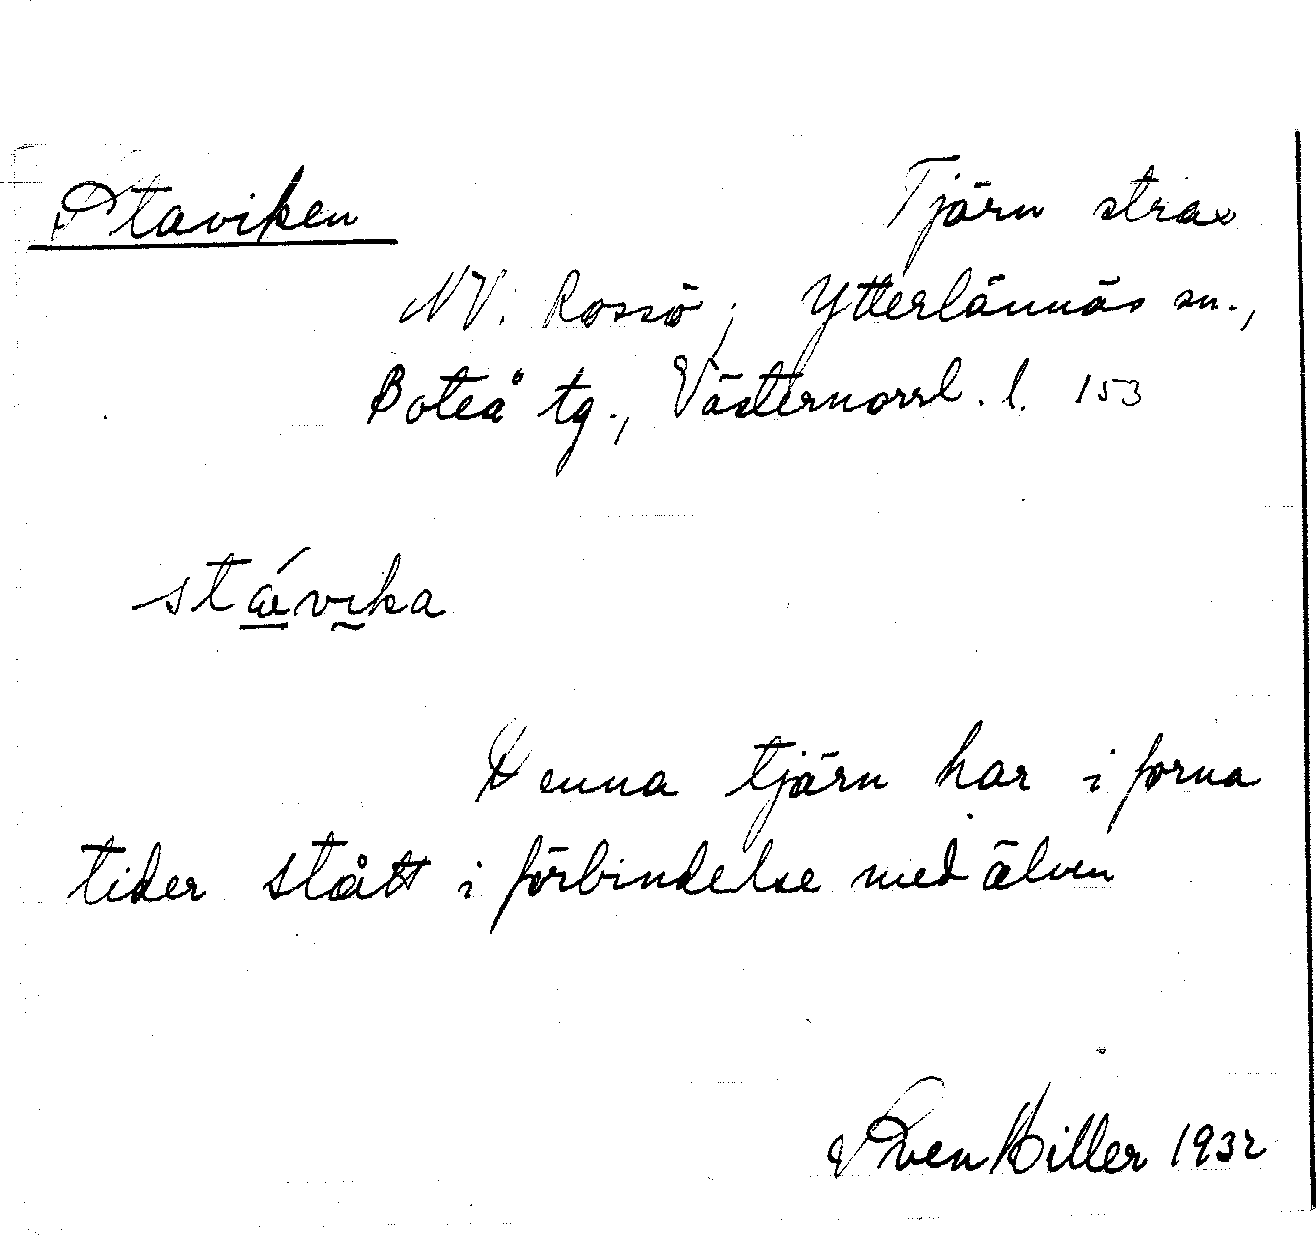 Staviken
Tjärn strax
NV. Rossö, Ytterlännäs sn.,
Boteå tg., Västernorrl. l. 153
stǽvika
Denna tjärn har i forna
tider stått i förbindelse med älven
Sven Hiller 1932